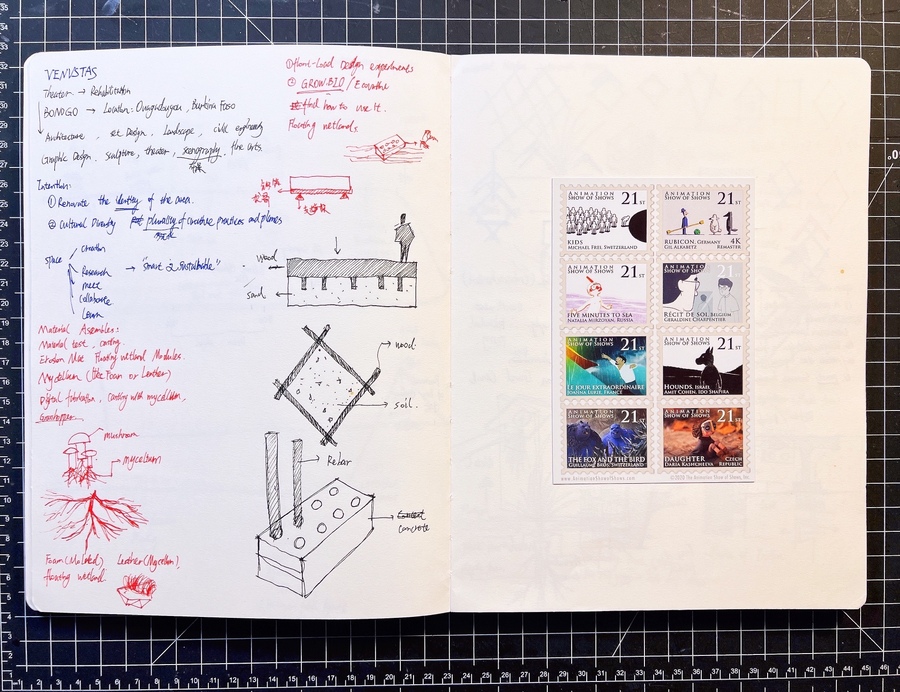 VENUSTAS
Theater → Rehabilitation
BOMOGO → Location: Ouagadougou, Burkina Faso
Architecture, set Design, Landscape, civil engineering
Graphic Design, sculpture, theater, scenography, the arts.
Intention:
① Renovate the identity of the area.
② Cultural Diversity plurality of creative practices and
space
creation
Research
meet
Collaborate
Learn
→ "smart & sustainable"
Material Assembles:
Material test, casting.
Erosion Mat Floating wetland Modules.
Mycelium (like Foam or Leather)
Digital fabrication, casting with mycelium,
Grasshopper
mushroom
mycelium
Foam (Molded) Leather (Mycelium),
floating wetland
① Plant-Load Design experiments
② GROW.BIO / Ecovative
find how to use it.
Floating wetlands.
wood
sand
wood.
soil.
Rebar
concrete
ANIMATION SHOW OF SHOWS 21ST
KIDS
MICHAEL FREI, SWITZERLAND
ANIMATION SHOW OF SHOWS 21ST
RUBICON, GERMANY 4K
GIL ALKABETZ REMASTER
ANIMATION SHOW OF SHOWS 21ST
FIVE MINUTES TO SEA
NATALIA MIRZOYAN, RUSSIA
ANIMATION SHOW OF SHOWS 21ST
RÉCIT DE SOI, BELGIUM
GÉRALDINE CHARPENTIER
ANIMATION SHOW OF SHOWS 21ST
LE JOUR EXTRAORDINAIRE
JOANNA LURIE, FRANCE
ANIMATION SHOW OF SHOWS 21ST
HOUNDS, ISRAEL
AMIT COHEN, IDO SHAPIRA
ANIMATION SHOW OF SHOWS 21ST
THE FOX AND THE BIRD
GUILLAUME BROS, SWITZERLAND
ANIMATION SHOW OF SHOWS 21ST
DAUGHTER CZECH
DARIA KASHCHEEVA REPUBLIC
www.AnimationShowofShows.com